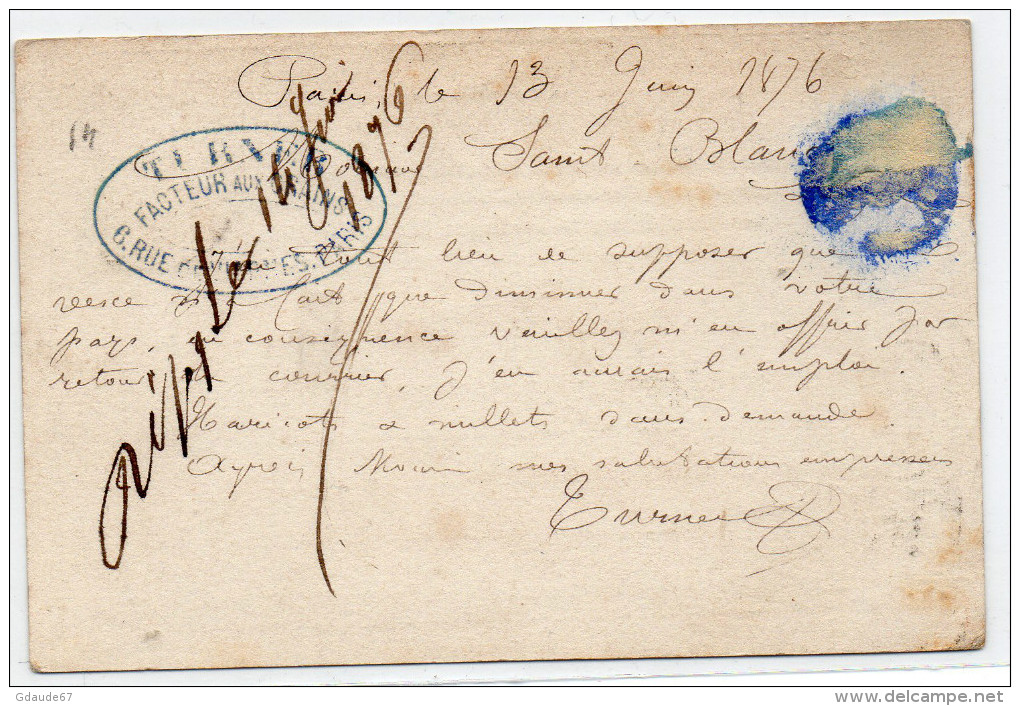 Paris, le 13 Juin 1876
TURNEL
FACTEUR AUX GRAINS
6. RUE PARIS
Saint Blan
lieu de supposer que
vesce que diminuer dans votre
pays, en conséquence veuillez m'en offrir par
retour de courrier, j'en aurais l'emploi.
Haricots & millets sans demande
Agréez mes salutations empressées
Turnel
14 Juin 1876
Gdaude67
www.delcampe.net